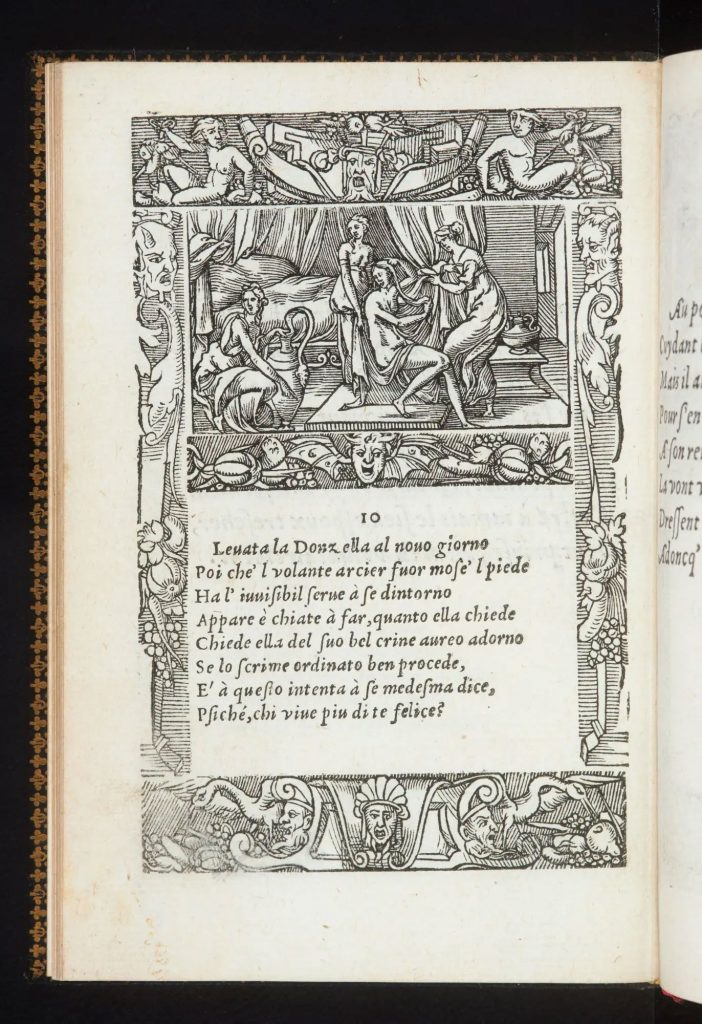 10
Leuata la Donzella al nouo giorno
Poi che' l volante arcier fuor mose' l piede
Ha l' iuuisibil serue à se dintorno
Appare è chiate à far, quanto ella chiede
Chiede ella del suo bel crine aureo adorno
Se lo scrime ordinato ben procede,
E' à questo intenta à se medesma dice,
Psiché, chi viue piu di te felice?
Au
Cuydant
Mais il a
Pour s'en
A son
La vont
Dressent
Adoncq'